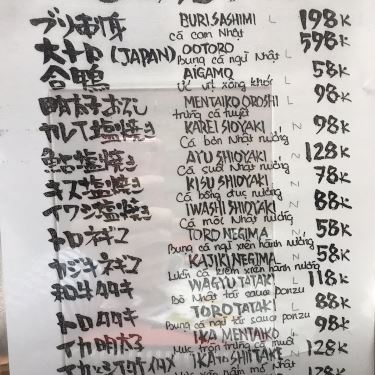 ブリお作 BURI SASHIMI L 198K
Cá cam Nhật
大トロ (JAPAN) OOTORO 598K
Bụng cá ngừ Nhật L
合鴨 AIGAMO 58K
Ức vịt xông khói L
明太子おろし MENTAIKO OROSHI 98K
trứng cá tuyết L
カレイ塩焼き KAREI SIOYAKI N 98K
Cá bơn Nhật nướng
鮎塩焼き AYU SHIOYAKI N 128K
Cá suối Nhật nướng
キス塩焼き KISU SHIOYAKI N 78K
Cá bống đục nướng
イワシ塩焼き IWASHI SHIOYAKI N 88K
Cá mòi Nhật nướng
トロネギマ TORO NEGIMA N 58K
Bụng cá ngừ xiên hành nướng
カジキネギマ KAJIKI NEGIMA N 58K
Lườn cá kiếm xiên hành nướng
和牛タタキ WAGYU TATAKI L 118K
Bò Nhật tái sauce ponzu
トロタタキ TORO TATAKI L 88K
Bụng cá ngừ tái sauce ponzu
イカ明太子 IKA MENTAIKO L 98K
Mực trộn trứng cá muối
IKA to SHIITAKE N 128K
Mực xào nấm mỡ Nhật
128K